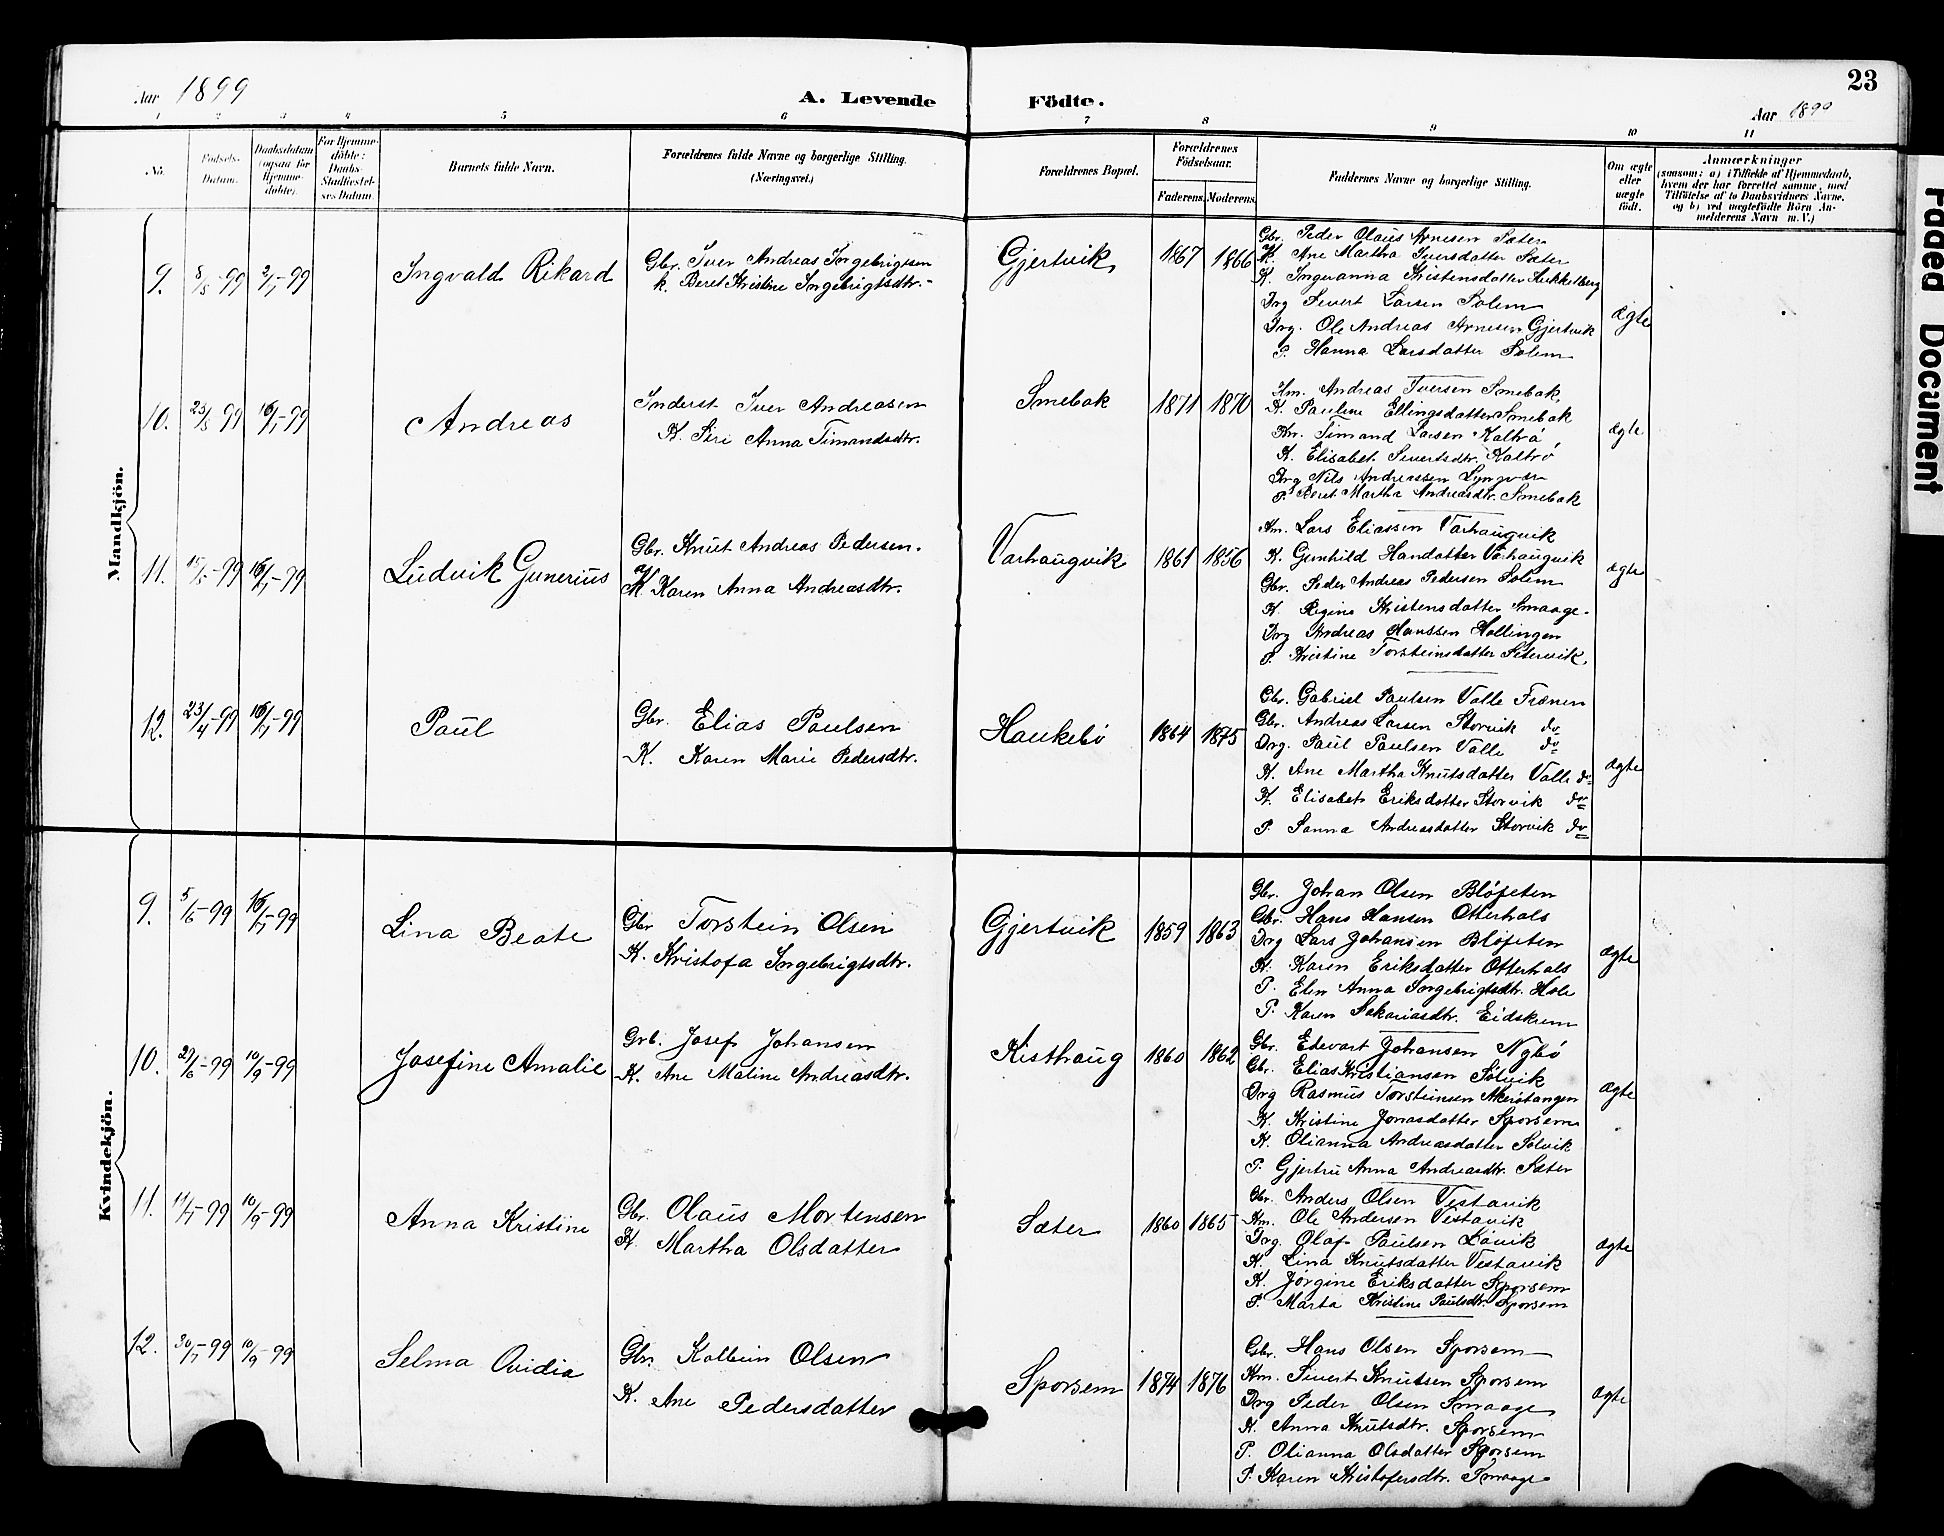 23
Aar 1899
A. Levende Födte.
Aar 1899
1 2 3 4 5 6 7 8 9 10 11
No.
Födsels-
Datum.
Daabsdatum
(ogsaa for
Hjemme-
döbte).
For Hjemme-
döbte:
Daabs-
Stadfæstel-
ses Datum.
Barnets fulde Navn.
Forældrenes fulde Navne og borgerlige Stilling.
(Næringsvei.)
Forældrenes Bopæl.
Forældrenes
Födselsaar.
Faderens. Moderens.
Faddernes Navne og borgerlige Stilling.
Om ægte
eller
uægte
födt.
Anmærkninger
(saasom: a) i Tilfælde af Hjemmedaab,
hvem der har forrettet samme, med
Tilföielse af to Daabsvidners Navne,
og b) ved uægtefödte Börn An-
melderens Navn m. V.)
Mandkjön.
9. 8/5-99 2/7-99 Ingvald Rikard
Gbr. Iver Andreas Ingebrigtsen
k. Beret Kristine Ingebrigtsdtr.
Gjertvik 1867 1866
Gbr. Peder Olaus Arnesen Sæter
K. Ane Martha Iversdatter Sæter
K. Ingeranna Kristensdatter
Drg Sivert Larsen Solem
Drg. Ole Andreas Arnesen Gjertvik
P. Hanna Larsdatter Solem
ægte
10. 23/5 99 16/7-99 Andreas
Inderst Iver Andreasen
K. Siri Anna Timandsdtr.
Smebak 1871 1870
Km. Andreas Iversen Smebak
K. Pauline Ellingsdatter Smebak
Km. Timand Larsen Kaltrø
K. Elisabet Sivertsdtr. Kaltrø
Drg Nils Andreassen
P. Beret Martha Andreasdtr. Smebak
ægte
11. 99 16/7-99 Ludvik Gunerius
Gbr. Knut Andreas Pedersen.
og
K. Karen Anna Andreasdtr.
Varhaugvik 1861 1856
Km. Lars Eliassen Varhaugvik
K. Gunhild Varhaugvik
Gbr. Peder Andreas Pedersen Solem
K. Regine Kristensdatter Smaage.
Drg Andreas Hanssen Hollingen
P. Kristine Torsteinsdatter
ægte
12. 23/4-99 16/7-99 Paul
Gbr. Elias Paulsen
K. Karen Marie Pedersdtr.
Haukebø 1864 1875
Gbr. Gabriel Paulsen Valle Frænen
Gbr. Andreas Larsen Storvik do
Drg. Paul Paulsen Valle do
K. Ane Martha Knutsdatter Valle do
K. Elisabet Eriksdatter Storvik do
P. Sanna Andreasdatter Storvik do
ægte
Kvindekjön.
9. 5/6-99 16/7-99 Lina Beate
Gbr Torstein Olsen
K. Kristofa Ingebrigtsdtr.
Gjertvik 1859 1863
Gbr. Johan Olsen Bløseten
Gbr. Hans Hansen Otterhals
Drg Lars Johansen Bløseten
K. Karen Eriksdatter Otterhals
P. Elen Anna Ingebrigtsdtr. Hole
P. Karen Sakariasdtr. Eidskrem
ægte
10. 99 10/9-99 Josefine Amalie
Grb. Josef Johansen
K. Ane Maline Andreasdtr.
Kisthaug 1860 1862
Gbr. Edevart Johansen Nybø
Gbr. Elias Kristiansen Solvik
Drg Rasmus Torsteinsen
K. Kristine Jonasdatter Sporsem
K. Olianna Andreasdatter Solvik
P. Gjertru Anna Andreasdtr. Sæter
ægte
11. 99 10/9-99 Anna Kristine
Gbr. Olaus Mortensen
K. Martha Olsdatter
Sæter 1860 1865
Gbr. Anders Olsen Vestavik
Km. Ole Andersen Vestavik
Drg. Olaf Paulsen Løvik
K. Lina Knutsdatter Vestavik
K. Jørgine Eriksdatter Sporsem
P. Marta Kristine Paulsdtr. Sporsem
ægte
12. 30/7-99 10/9-99 Selma Ovidia
Gbr. Kolbein Olsen
K. Ane Pedersdatter
Sporsem 1874 1876
Gbr. Hans Olsen Sporsem
Km. Sivert Knutsen Sporsem
Drg Peder Olsen Smaage
K. Anna Knutsdtr. Sporsem
P. Olianna Olsdatter Sporsem
P. Karen Kristofersdtr. Smaage
ægte
Faded Document